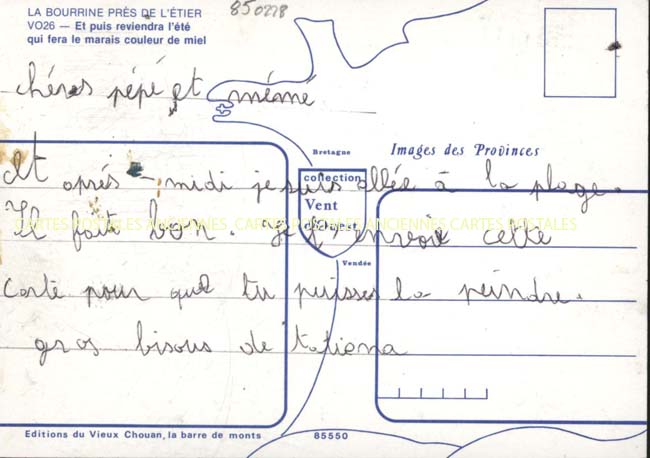 LA BOURRINE PRÈS DE L'ÉTIER
VO26 — Et puis reviendra l'été
qui fera le marais couleur de miel
850278
chéres pépé et mémé
Bretagne
Images des Provinces
collection
Vent
d'Ouest
Vendée
At après-midi je suis allée à la plage.
Il fait bon. je t'envoie cette
carte pour que tu puisses la peindre.
gros bisous de tatiana
CARTES POSTALES ANCIENNES CARTES POSTALES ANCIENNES CARTES POSTALES
Editions du Vieux Chouan, la barre de monts
85550